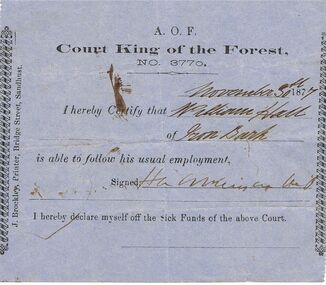 A. O. F.
Court King of the Forest,
NO. 3770.
November 30th 1877
I hereby Certify that William Hall
of Iron Bark
is able to follow his usual employment,
Signed
I hereby declare myself off the Sick Funds of the above Court.
J. Brockley, Printer, Bridge Street, Sandhurst.